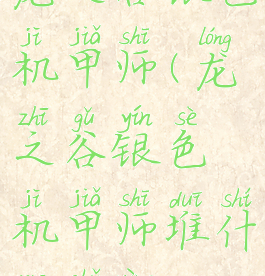 jī jiǎ shī lóng
机甲师(龙
zhī gǔ yín sè
之谷银色
jī jiǎ shī duī shí
机甲师堆什